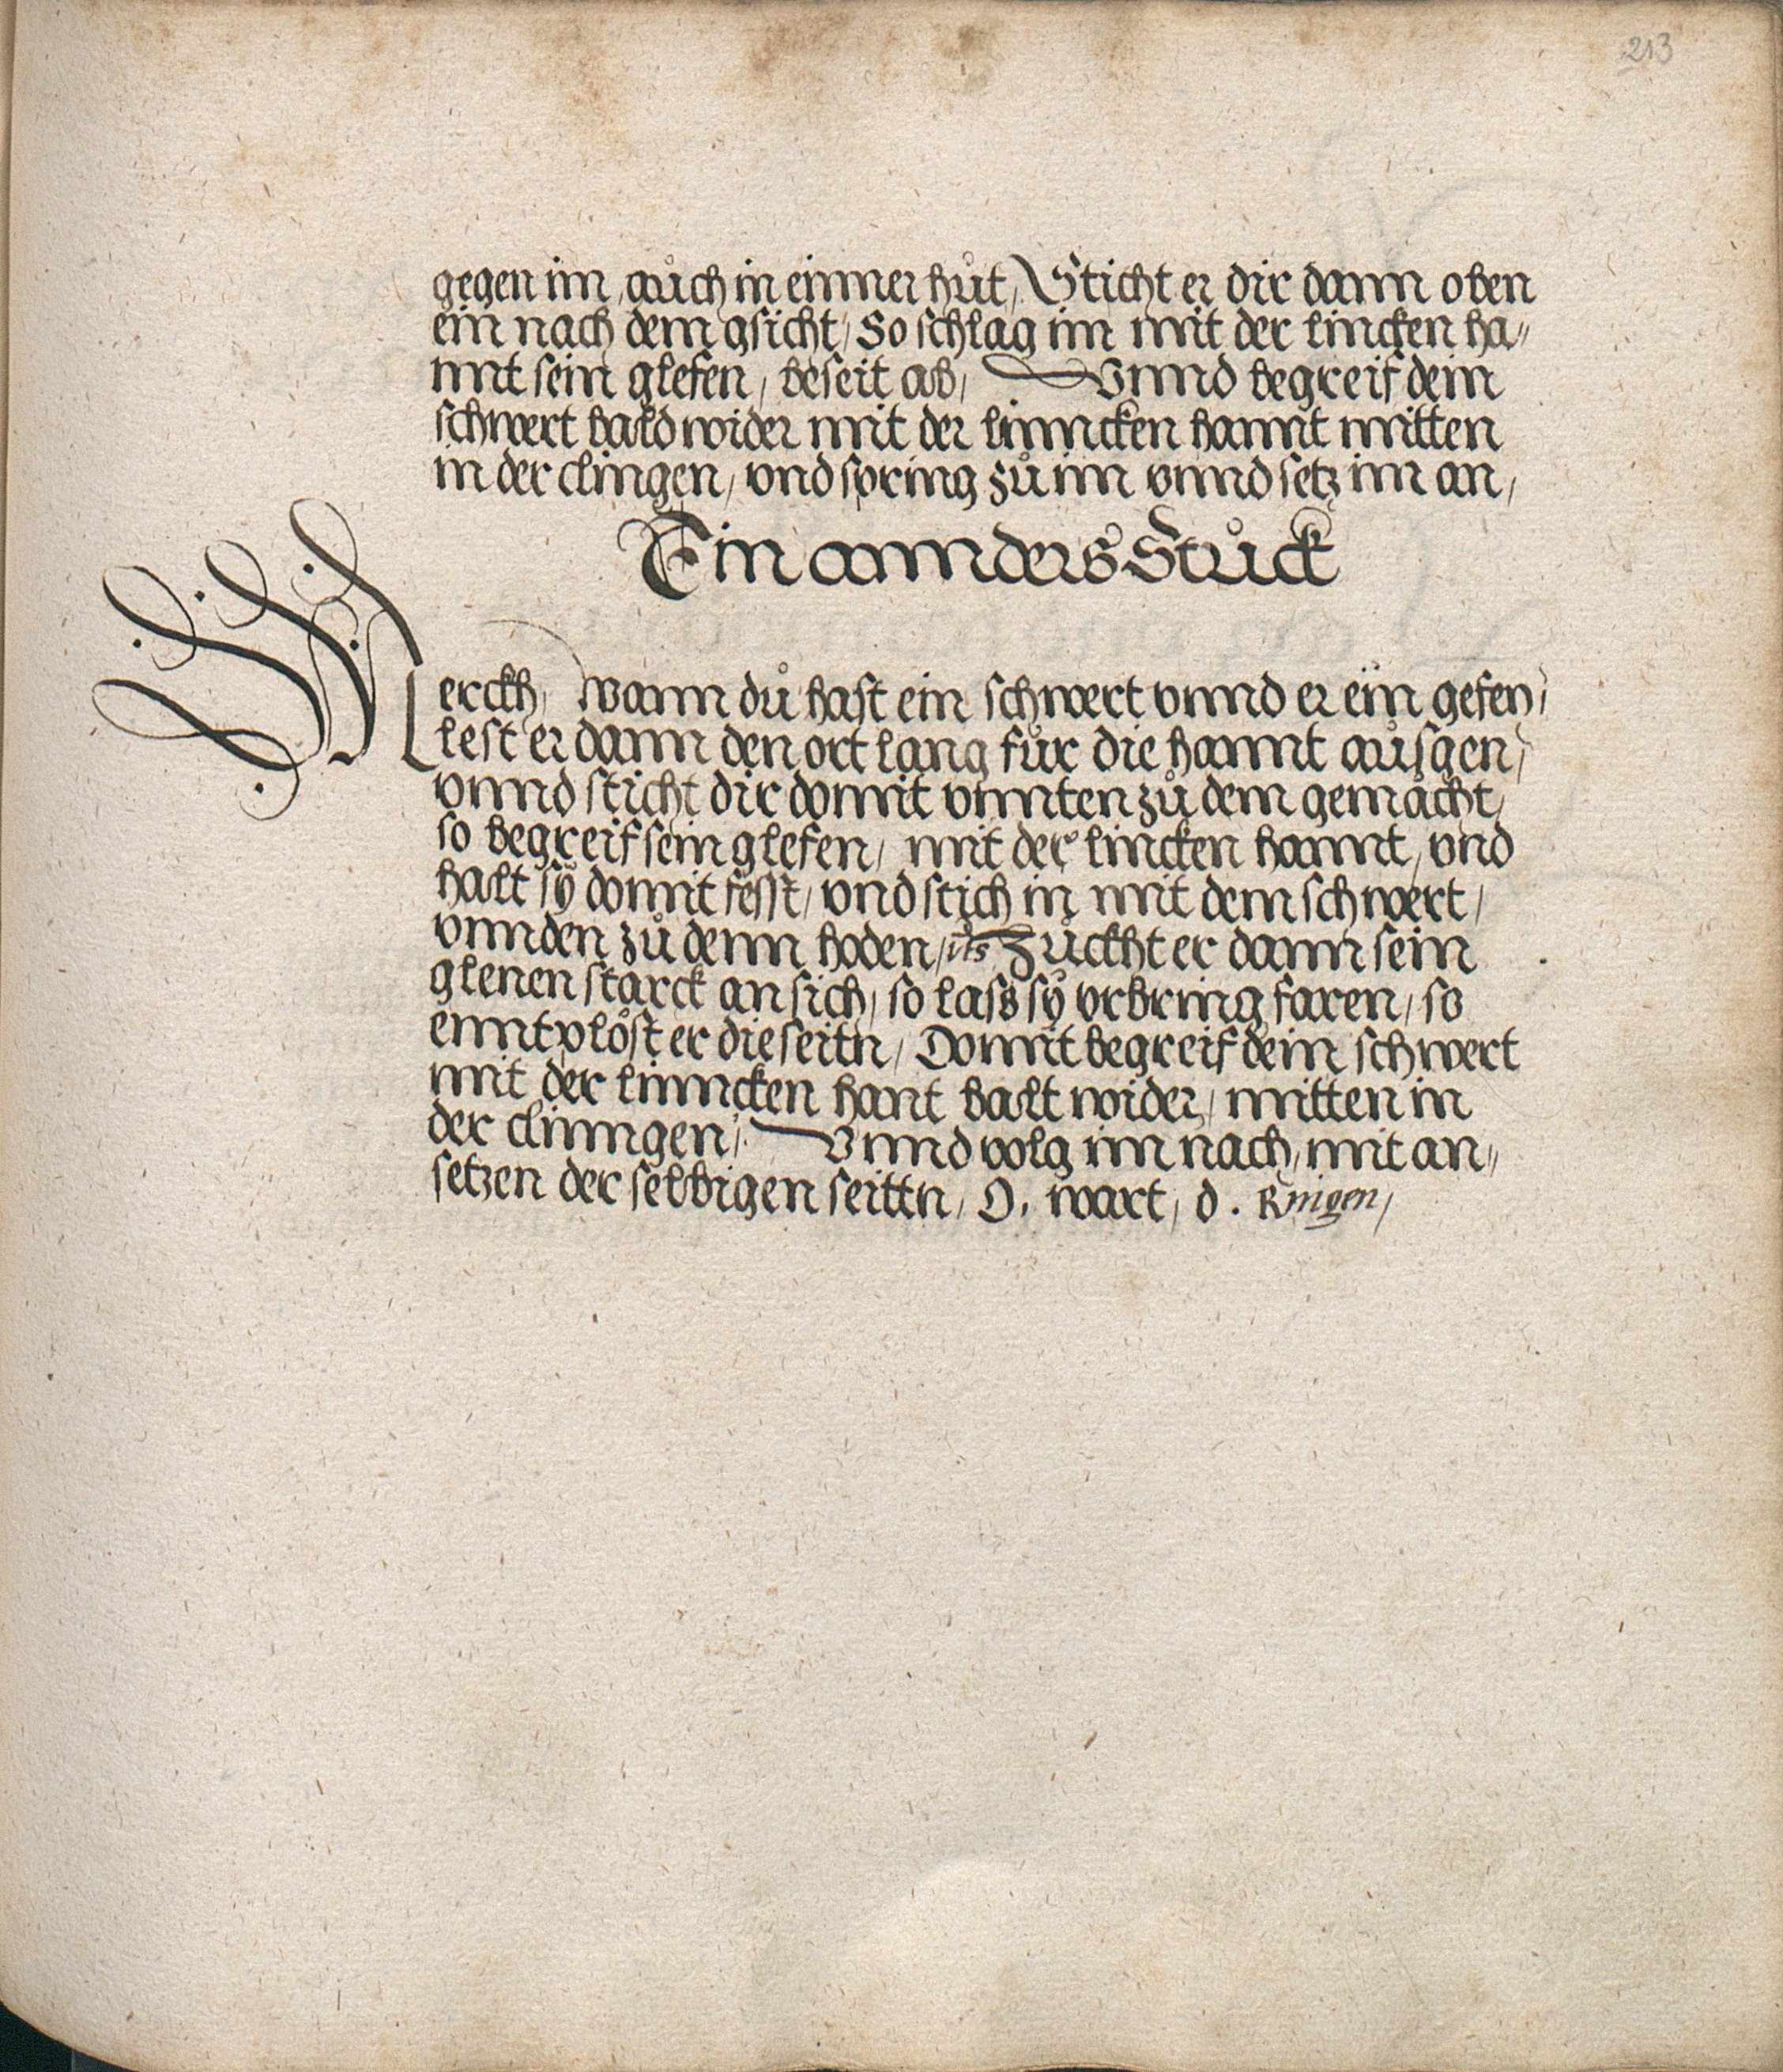 213
gegen im, aůch in einner hůt, Sticht er dir dann oben
ein nach dem gsicht, So schlag im mit der lincken ha„
nnt sein glefen, beseit ab, Vnnd begreif dein
schwert bald wider mit der linncken hannt mitten
in der clingen, vnd spring zů im vnnd setz im an,
Ein annders Stůck
Merckh, wann dů hast ein schwert vnnd er ein gefen,
lest er dann den ort lang fůr die hannt aůsgen,
vnnd sticht dir domit vnnten zů dem gemächt,
so begreif sein glefen, mit der lincken hannt, vnd
halt sÿ domit fesst, vnd stich in mit dem schwert,
vnnden zů denn hoden, Zůckht er dann sein
glenen starck an sich, so lass sÿ vrbring faren, so
enntplöst er die seitn, Domit begreif dein schwert
mit der linncken hant balt wider, mitten in
der clinngen, Vnnd volg im nach, mit an„
setzen der selbigen seittn, D. wart, d. Ringen,